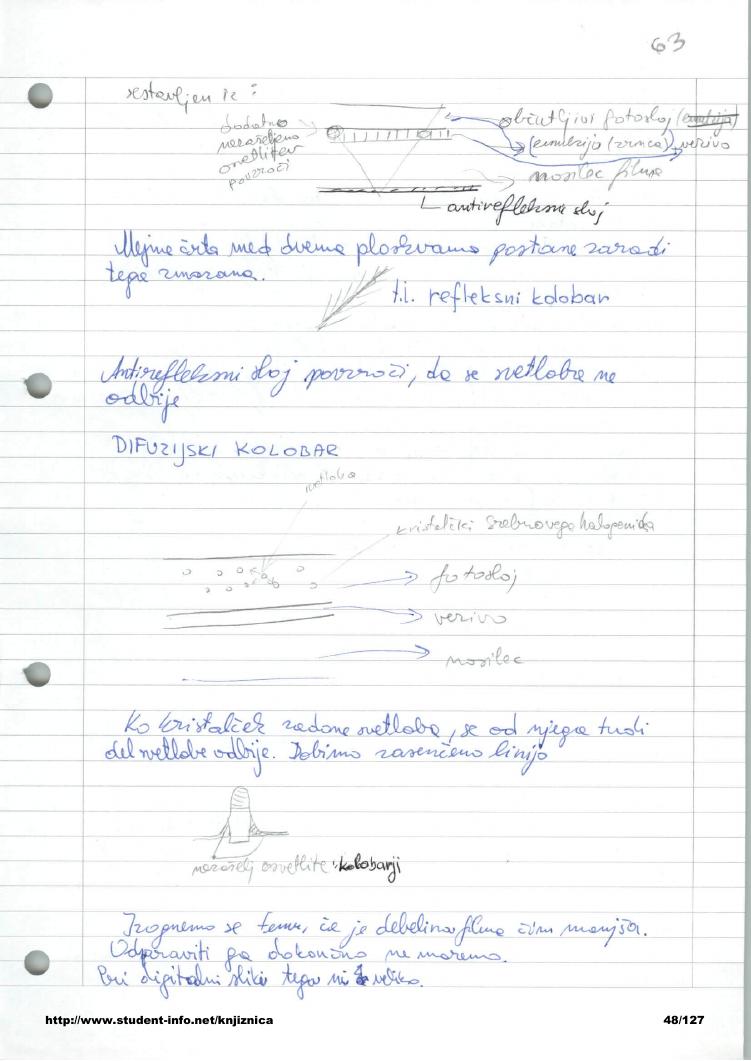 63
sestavljen iz:
občutljivi fotosloj (emulzija)
dodatno
nezaželjeno
osvetlitev
povzroči
(emulzija (zrnca), vezivo
nosilec filma
antirefleksni sloj
Mejna črta med dvema ploskvama postane zaradi
tega zmazana.
t.i. refleksni kolobar
Antirefleksni sloj povzroči, da se svetloba ne
odbije
DIFUZIJSKI KOLOBAR
svetloba
kristalčki srebrovega halogenida
fotosloj
vezivo
nosilec
Ko kristalček zadane svetloba, se od njega tudi
del svetlobe odbije. Dobimo zasenčeno linijo
osvetlitve kolobarji
Izognemo se temu, če je debelina filma čim manjša.
Odpraviti ga dokončno ne moremo.
Pri digitalni sliki tega ni veliko.
http://www.student-info.net/knjiznica
48/127